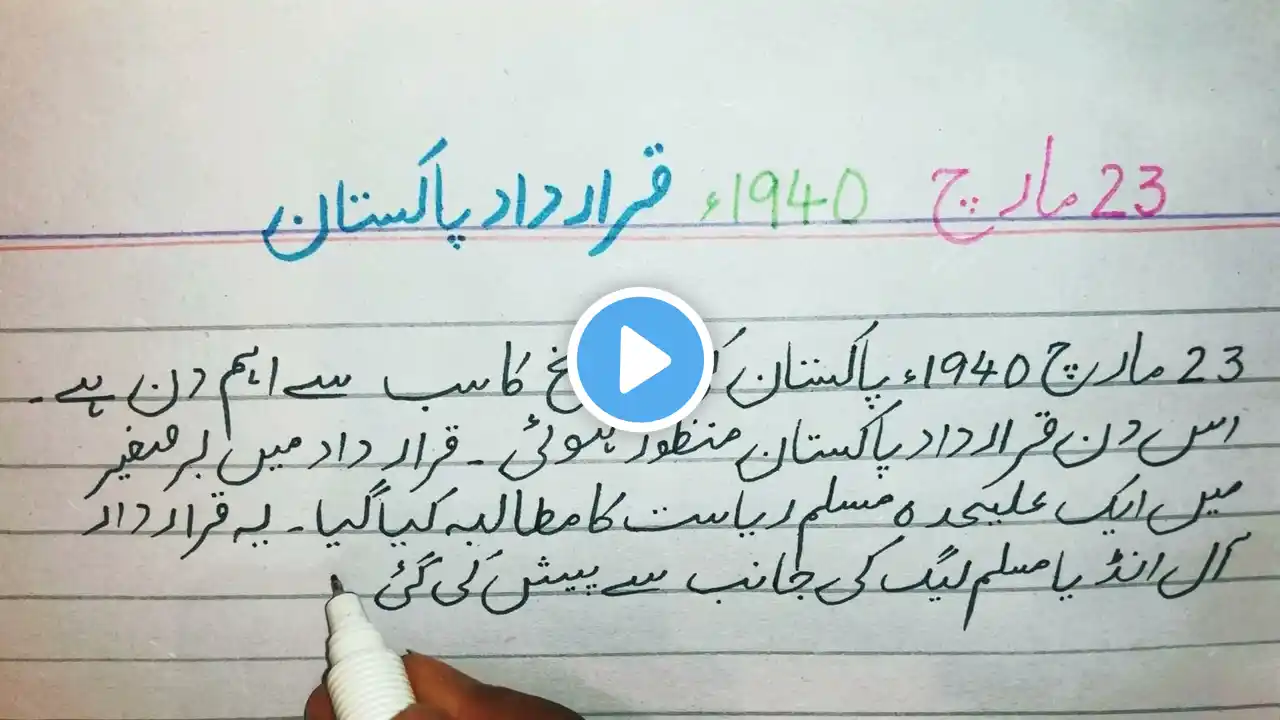 23 مارچ 1940ء قرارداد پاکستان
23 مارچ 1940ء پاکستان کا سب سے اہم دن ہے۔
اس دن قرارداد پاکستان منظور ہوئی۔ قرارداد میں برصغیر
میں ایک علیحدہ مسلم ریاست کا مطالبہ کیا گیا۔ یہ قرارداد
آل انڈیا مسلم لیگ کی جانب سے پیش کی گئی